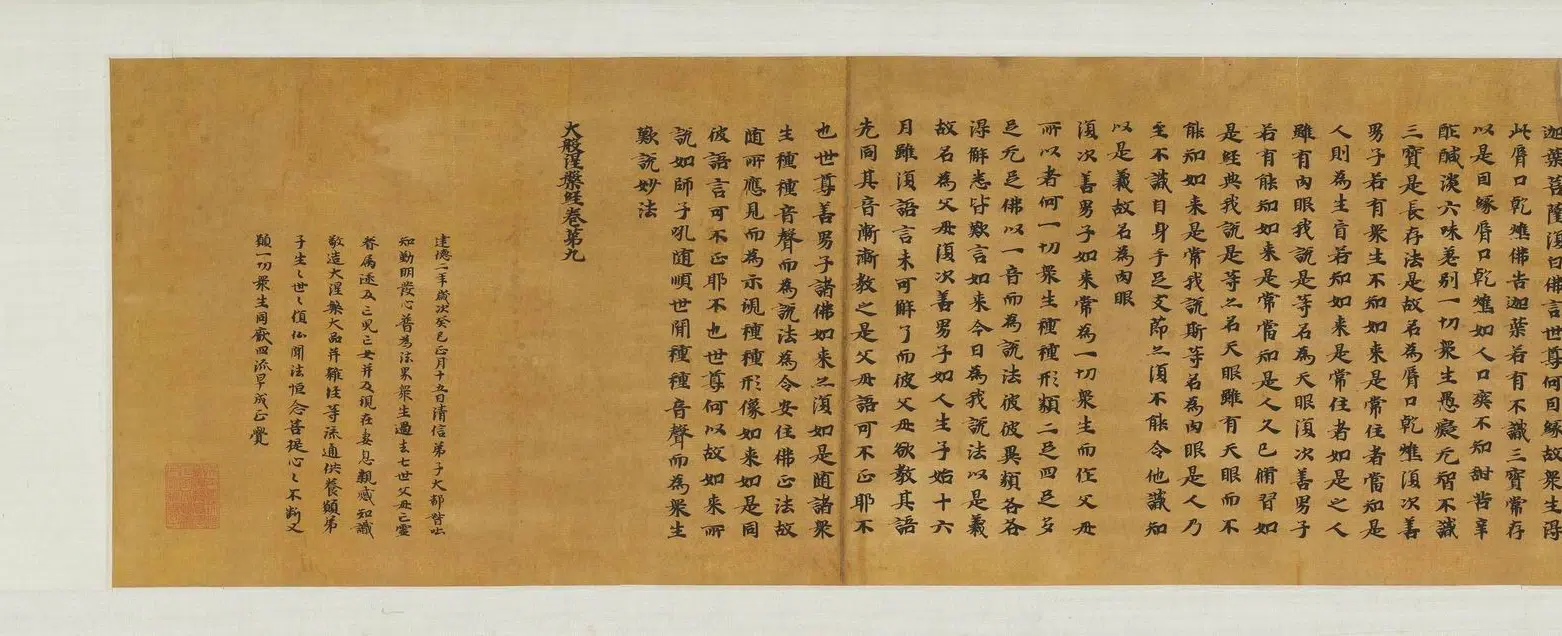 迦葉菩薩復白佛言世尊何因緣故衆生得
此脣口乾燋佛告迦葉若有不識三寶常存
以是因緣脣口乾燋如人口爽不知甜苦辛
酢醎淡六味差別一切衆生愚癡无智不識
三寶是長存法是故名為脣口乾燋復次善
男子若有衆生不知如来是常住者當知是
人則為生盲若知如来是常住者如是之人
雖有肉眼我說是等名為天眼復次善男子
若有能知如来是常當知是人久已脩習如
是經典我說是等亦名天眼雖有天眼而不
能知如来是常我說斯等名為肉眼是人乃
至不識自身手足支節亦復不能令他識知
以是義故名為肉眼
復次善男子如来常為一切衆生而作父母
所以者何一切衆生種種形類二足四足多
足无足佛以一音而為說法彼彼異類各各
得解悉皆歎言如来今日為我說法以是義
故名為父母復次善男子如人生子始十六
月雖復語言未可解了而彼父母欲教其語
先同其音漸漸教之是父母語可不正耶不
也世尊善男子諸佛如来亦復如是随諸衆
生種種音聲而為說法為令安住佛正法故
随所應見而為示現種種形像如来如是同
彼語言可不正耶不也世尊何以故如来所
說如師子吼随順世間種種音聲而為衆生
歎說妙法
大般涅槃經卷第九
建德二年歲次癸巳正月十五日清信弟子大都督吐
知勤明發心普為法界衆生過去七世父母亡靈
眷属逮及亡兒亡女并及現在妻息親戚知識
敬造大涅槃大品并雜經等流通供養願弟
子生々世々值佛聞法恒念菩提心々不断又
願一切衆生同厭四流早成正覺